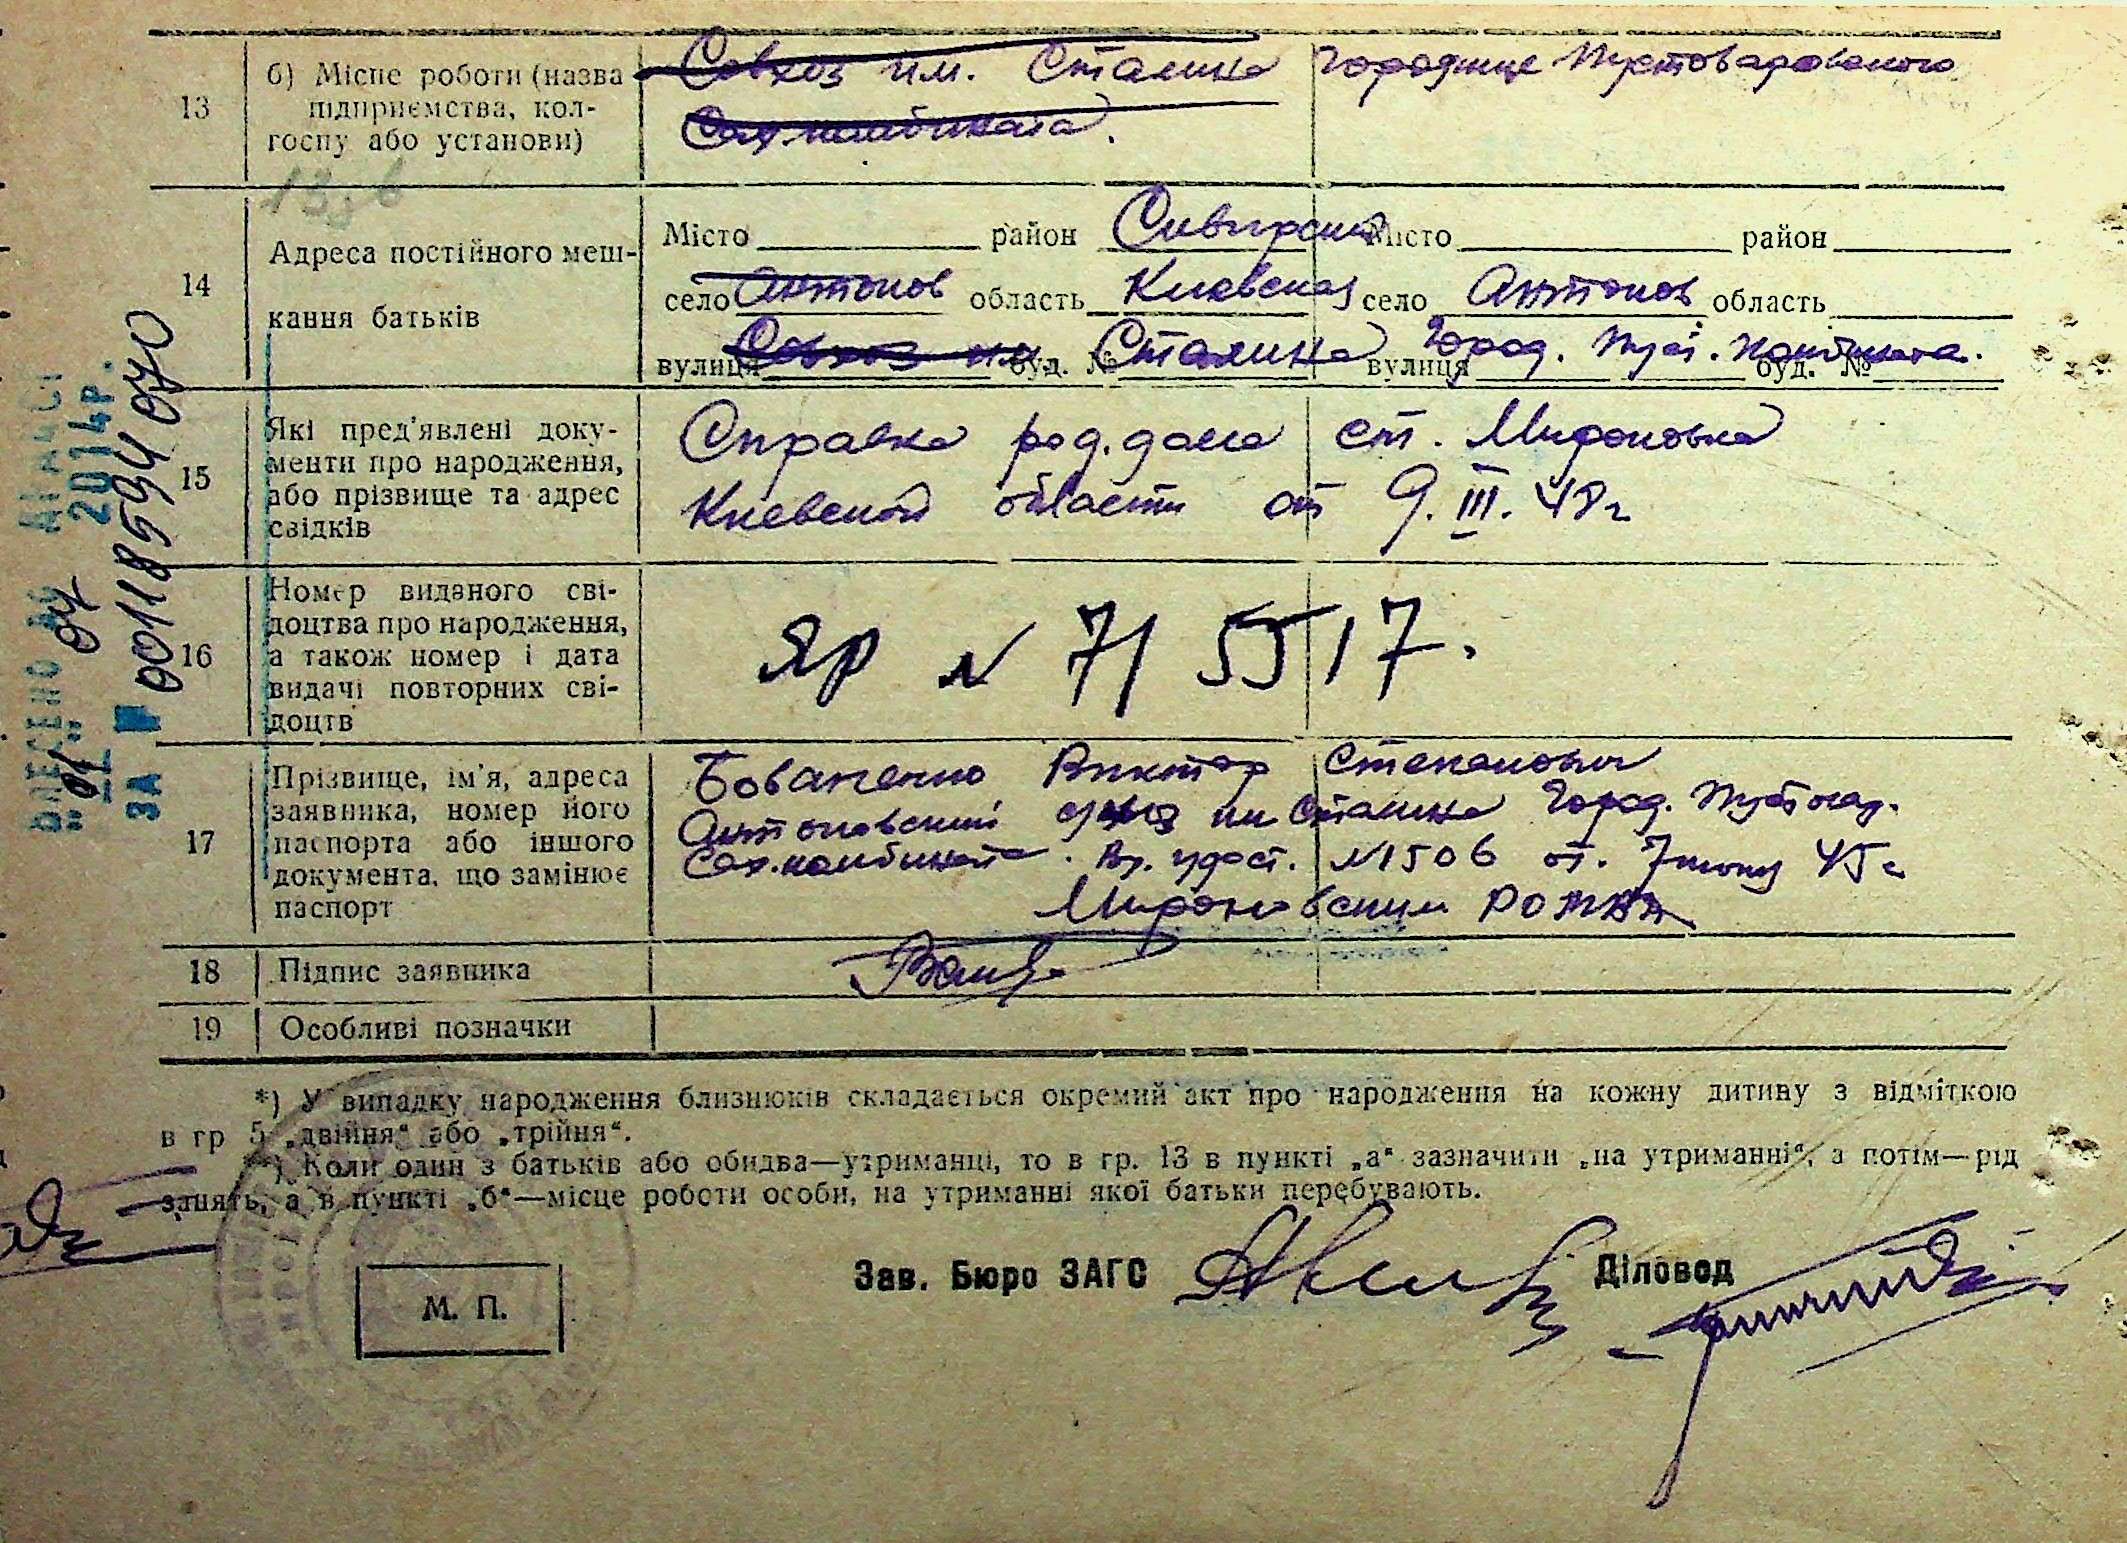 13
б) Місце роботи (назва підприємства, колгоспу або установи)
Совхоз им. Сталина Городище Пустоваровского
Сах.комбината.
13,б
14
Адреса постійного мешкання батьків
Місто район Місто район
село Антонов область Киевская село Антонов область
вулиця Совхоз им буд. № Сталина вулиця Город. Пуст. комбината. буд. №
15
Які пред'явлені документи про народження, або прізвище та адрес свідків
Справка род.дома ст. Мироновка
Киевской области от 9.III.48г
16
Номер виданого свідоцтва про народження, а також номер і дата видачі повторних свідоцтв
ЯР № 715517.
17
Прізвище, ім'я, адреса заявника, номер його паспорта або іншого документа, що замінює паспорт
Бованенко Виктор Степанович
Антоновский им Сталина Город. Пустовар.
Сах.комбината. Вр. удост. №1506 от. 45г
Мироновским
18 Підпис заявника
19 Особливі позначки
*) У випадку народження близнюків складається окремий акт про народження на кожну дитину з відміткою
в гр 5 „двійня“ або „трійня“.
**) Коли один з батьків або обидва—утриманці, то в гр. 13 в пункті „а“ зазначити „на утриманні“, а потім—рід
занять, а в пункті „б“—місце роботи особи, на утриманні якої батьки перебувають.
Зав. Бюро ЗАГС Діловод
М. П.
ВНЕСЕНО ДО ДРАЦС
2014р.
ЗА № 00118594070